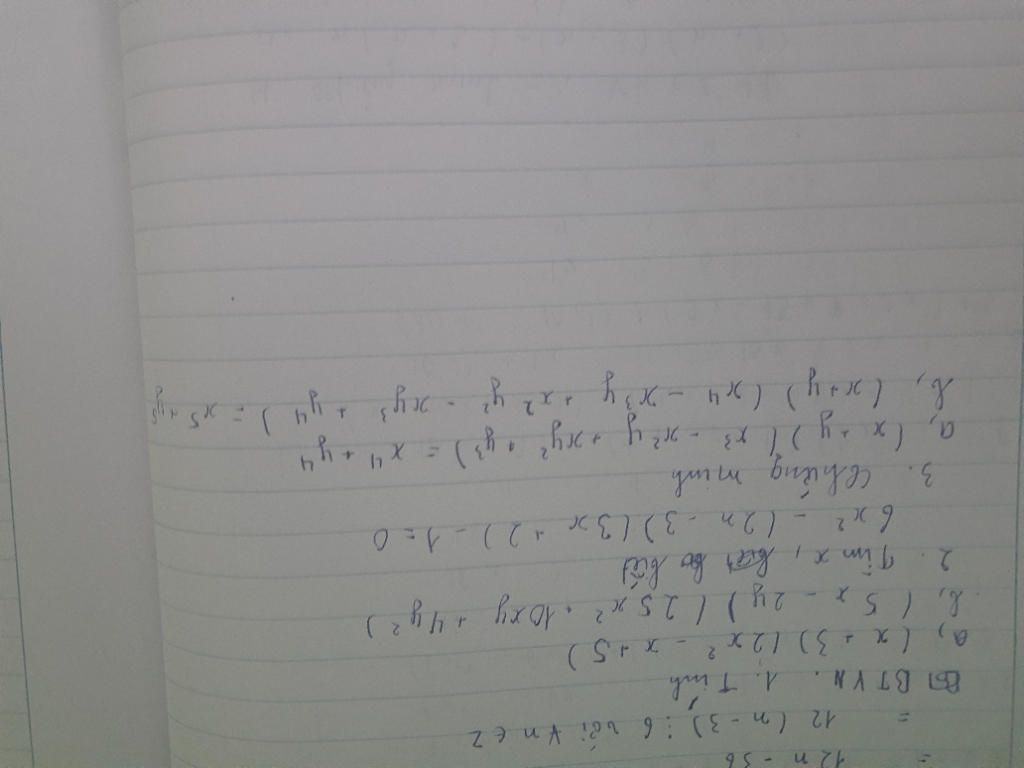 = 12n - 36
= 12 (n - 3) ⋮ 6 với ∀ n ∈ Z
BTVN. 1. Tính
a, (x + 3) (2x² - x + 5)
b, (5x - 2y) (25x² + 10xy + 4y²)
2. Tìm x, biết
6x² - (2x - 3) (3x + 2) - 1 = 0
3. Chứng minh
a, (x + y) (x³ - x²y + xy² + y³) = x⁴ + y⁴
b, (x + y) (x⁴ - x³y + x²y² - xy³ + y⁴) = x⁵ + y⁵